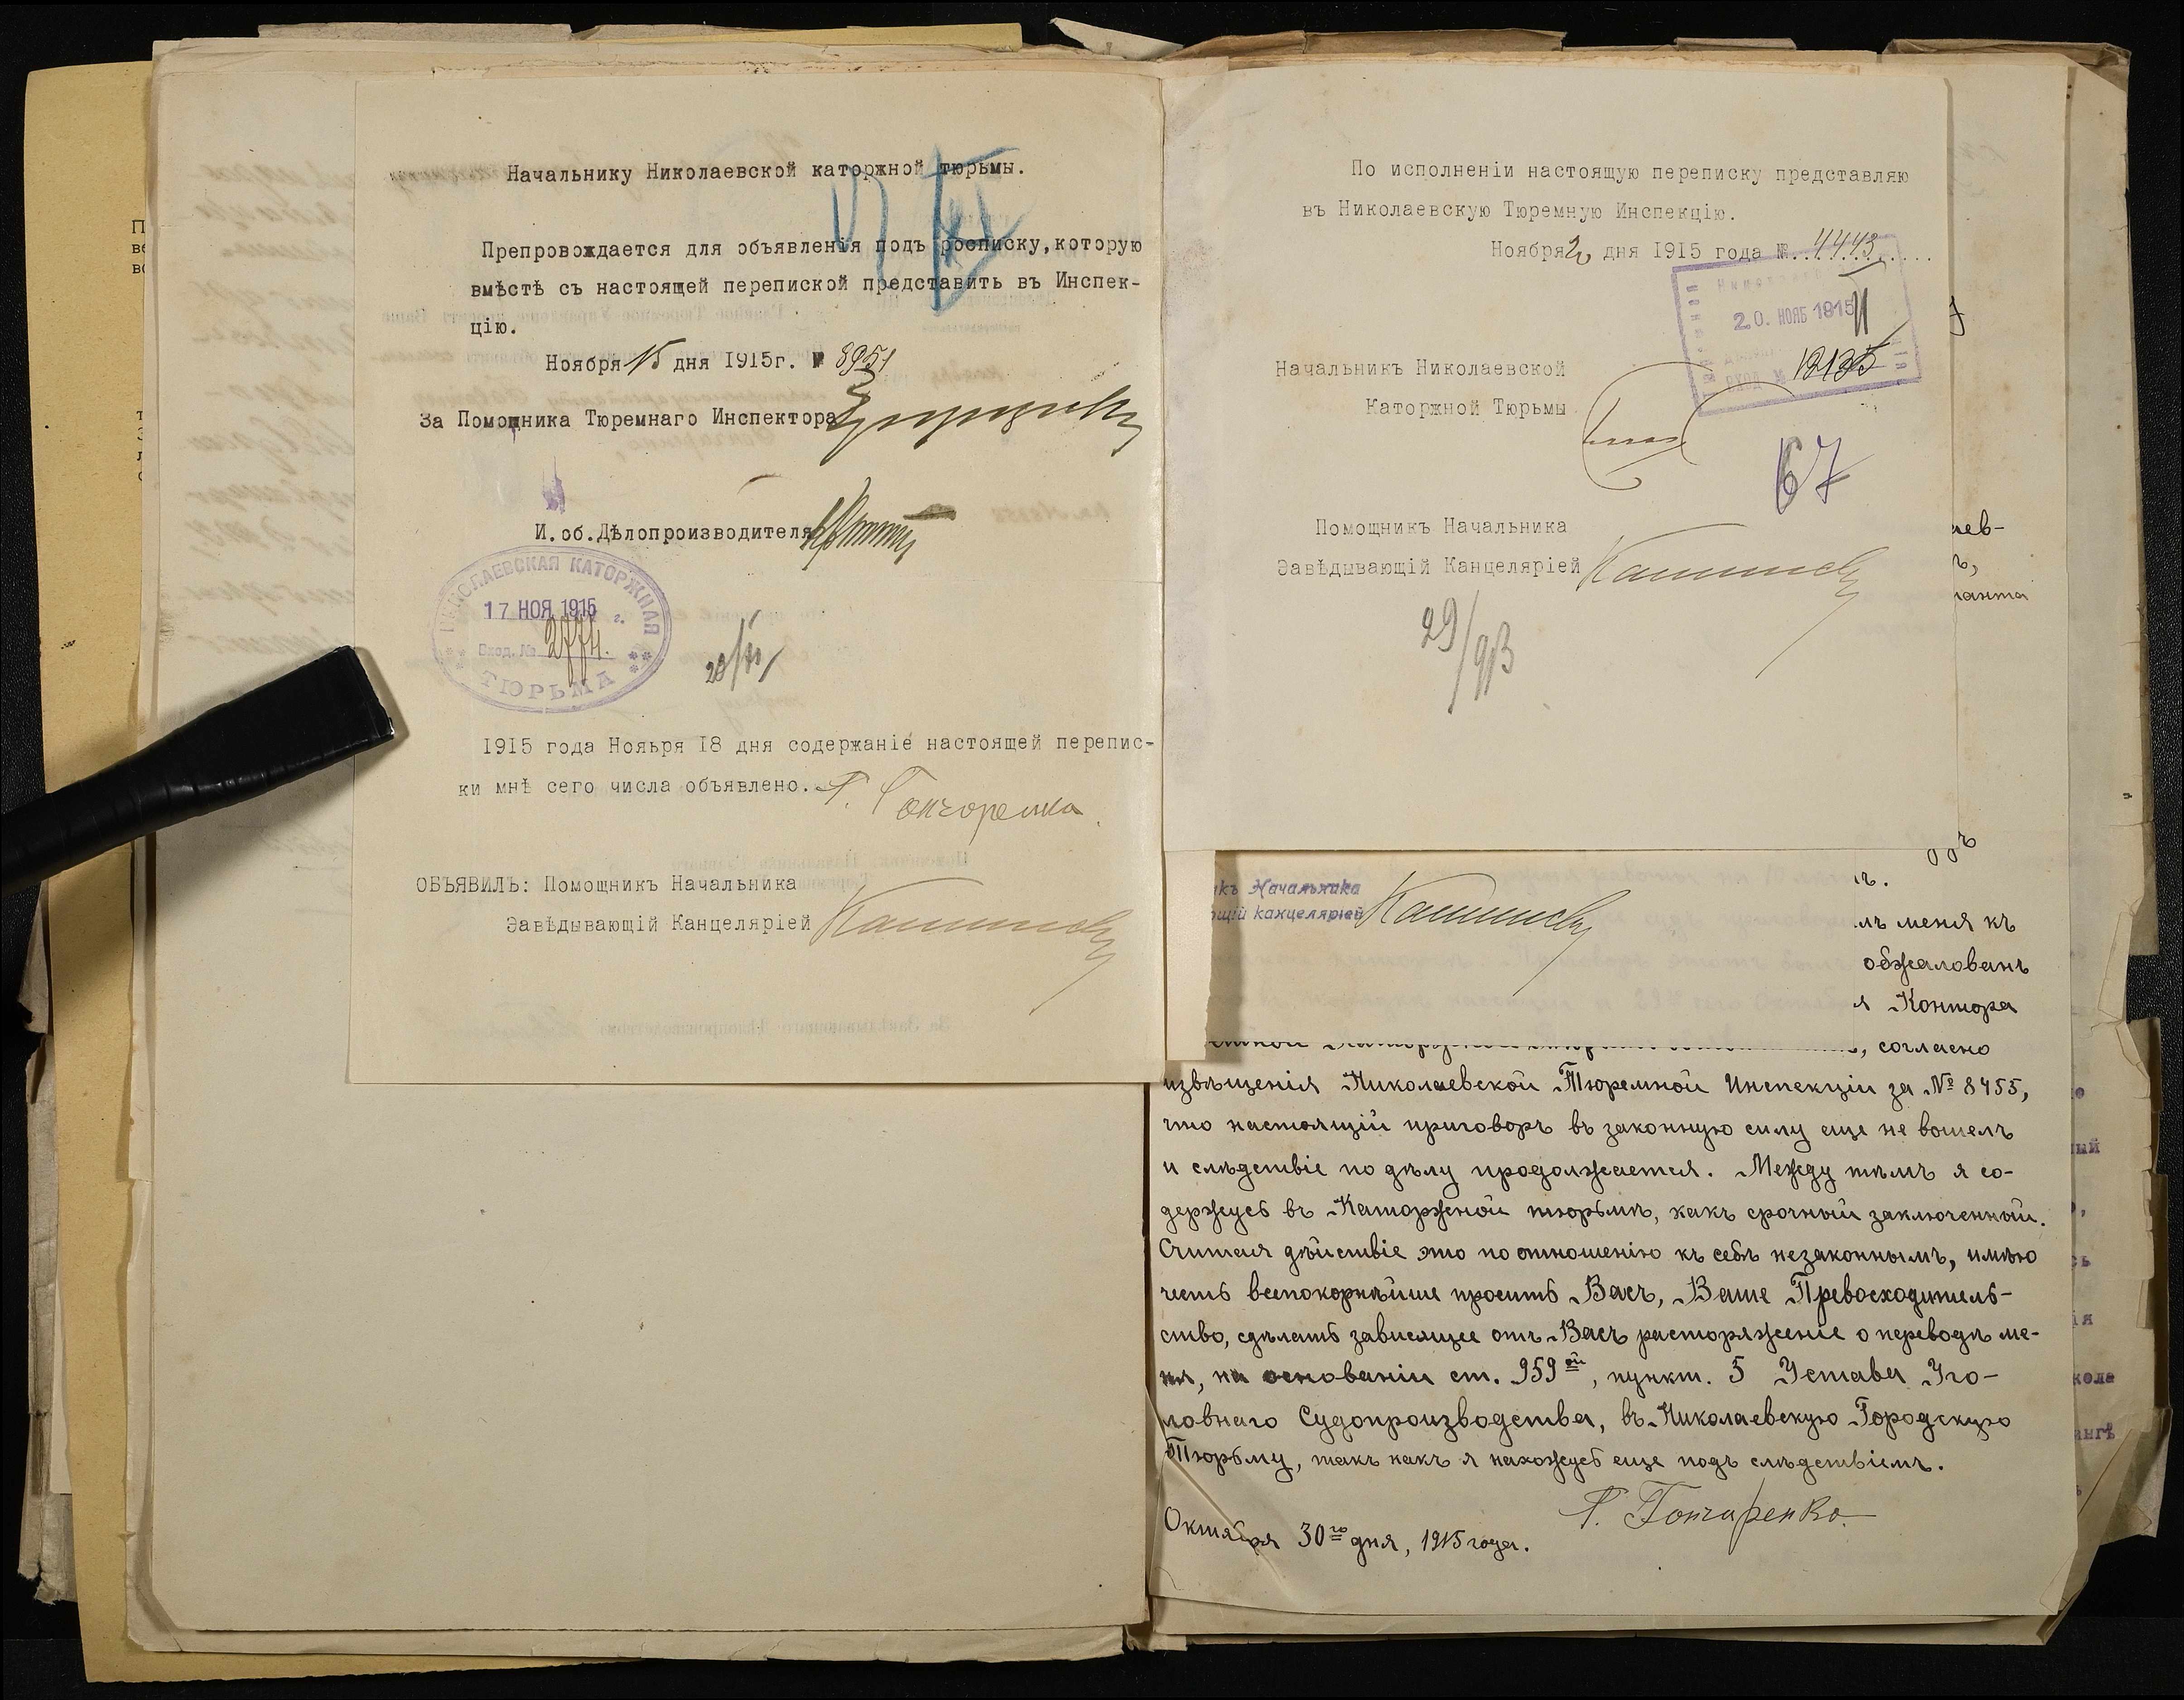 Начальнику Николаевской каторжной тюрьмы.
Препровождается для объявленія подъ росписку, которую
вмѣстѣ съ настоящей перепиской представить въ Инспек-
цію.
Ноября 15 дня 1915г. № 8951
За Помощника Тюремнаго Инспектора
И.об.Дѣлопроизводителя
НИКОЛАЕВСКАЯ КАТОРЖНАЯ
17 НОЯ 1915 г.
Вход. № 2774.
ТЮРЬМА
1915 года Нояьря 18 дня содержаніе настоящей перепис-
ки мнѣ сего числа объявлено. Г. Гончоренко.
ОБЪЯВИЛЪ: Помощникъ Начальника
Завѣдывающій Канцеляріей
По исполненіи настоящую переписку представляю
въ Николаевскую Тюремную Инспекцію.
Ноября 20 дня 1915 года № 4443
20. НОЯБ 1915
12135
Начальникъ Николаевской
Каторжной Тюрьмы
67
Помощникъ Начальника
Завѣдывающій Канцеляріей
29/913
аев-
ъ,
танта
къ Начальника
ющій канцеляріей
мъ меня къ
обжалованъ
я Контора
, согласно
извѣщенія Николаевской Тюремной Инспекціи за № 8455,
что настоящій приговоръ въ законную силу еще не вошелъ
и слѣдствіе по дѣлу продолжается. Между тѣмъ я со-
держусь въ Каторжной тюрьмѣ, какъ срочный заключенный.
Считая дѣйствіе это по отношенію къ себѣ незаконнымъ, имѣю
честь всепокорнѣйше просить Васъ, Ваше Превосходитель-
ство, сдѣлать зависящее отъ Васъ расторяженіе о переводѣ ме-
ня, на основаніи ст. 959ой, пункт. 5 Устава Уго-
ловнаго Судопроизводства, въ Николаевскую Городскую
Тюрьму, такъ какъ я нахожусь еще подъ слѣдствіемъ.
Г. Гончаренко.
Октября 30го дня, 1915 года.